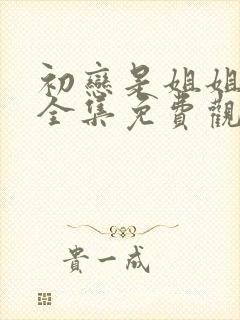 初戀是姐姐
全集免費觀
貴一成